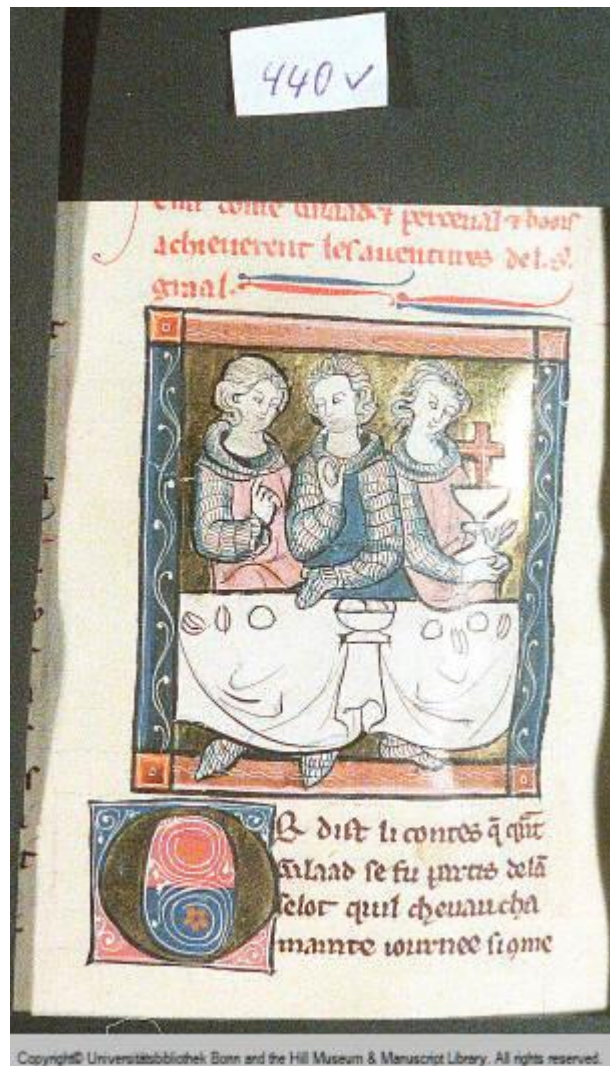 440 v
coment galaad & perceval & boors
achieuerent les auentures del. s'.
graal.
Or dist li contes q̄ qn̄t
Galaad se fu partis de lā
selot quil cheuaucha
mainte iournee si qme
Copyright© Universitätsbibliothek Bonn and the Hill Museum & Manuscript Library. All rights reserved.